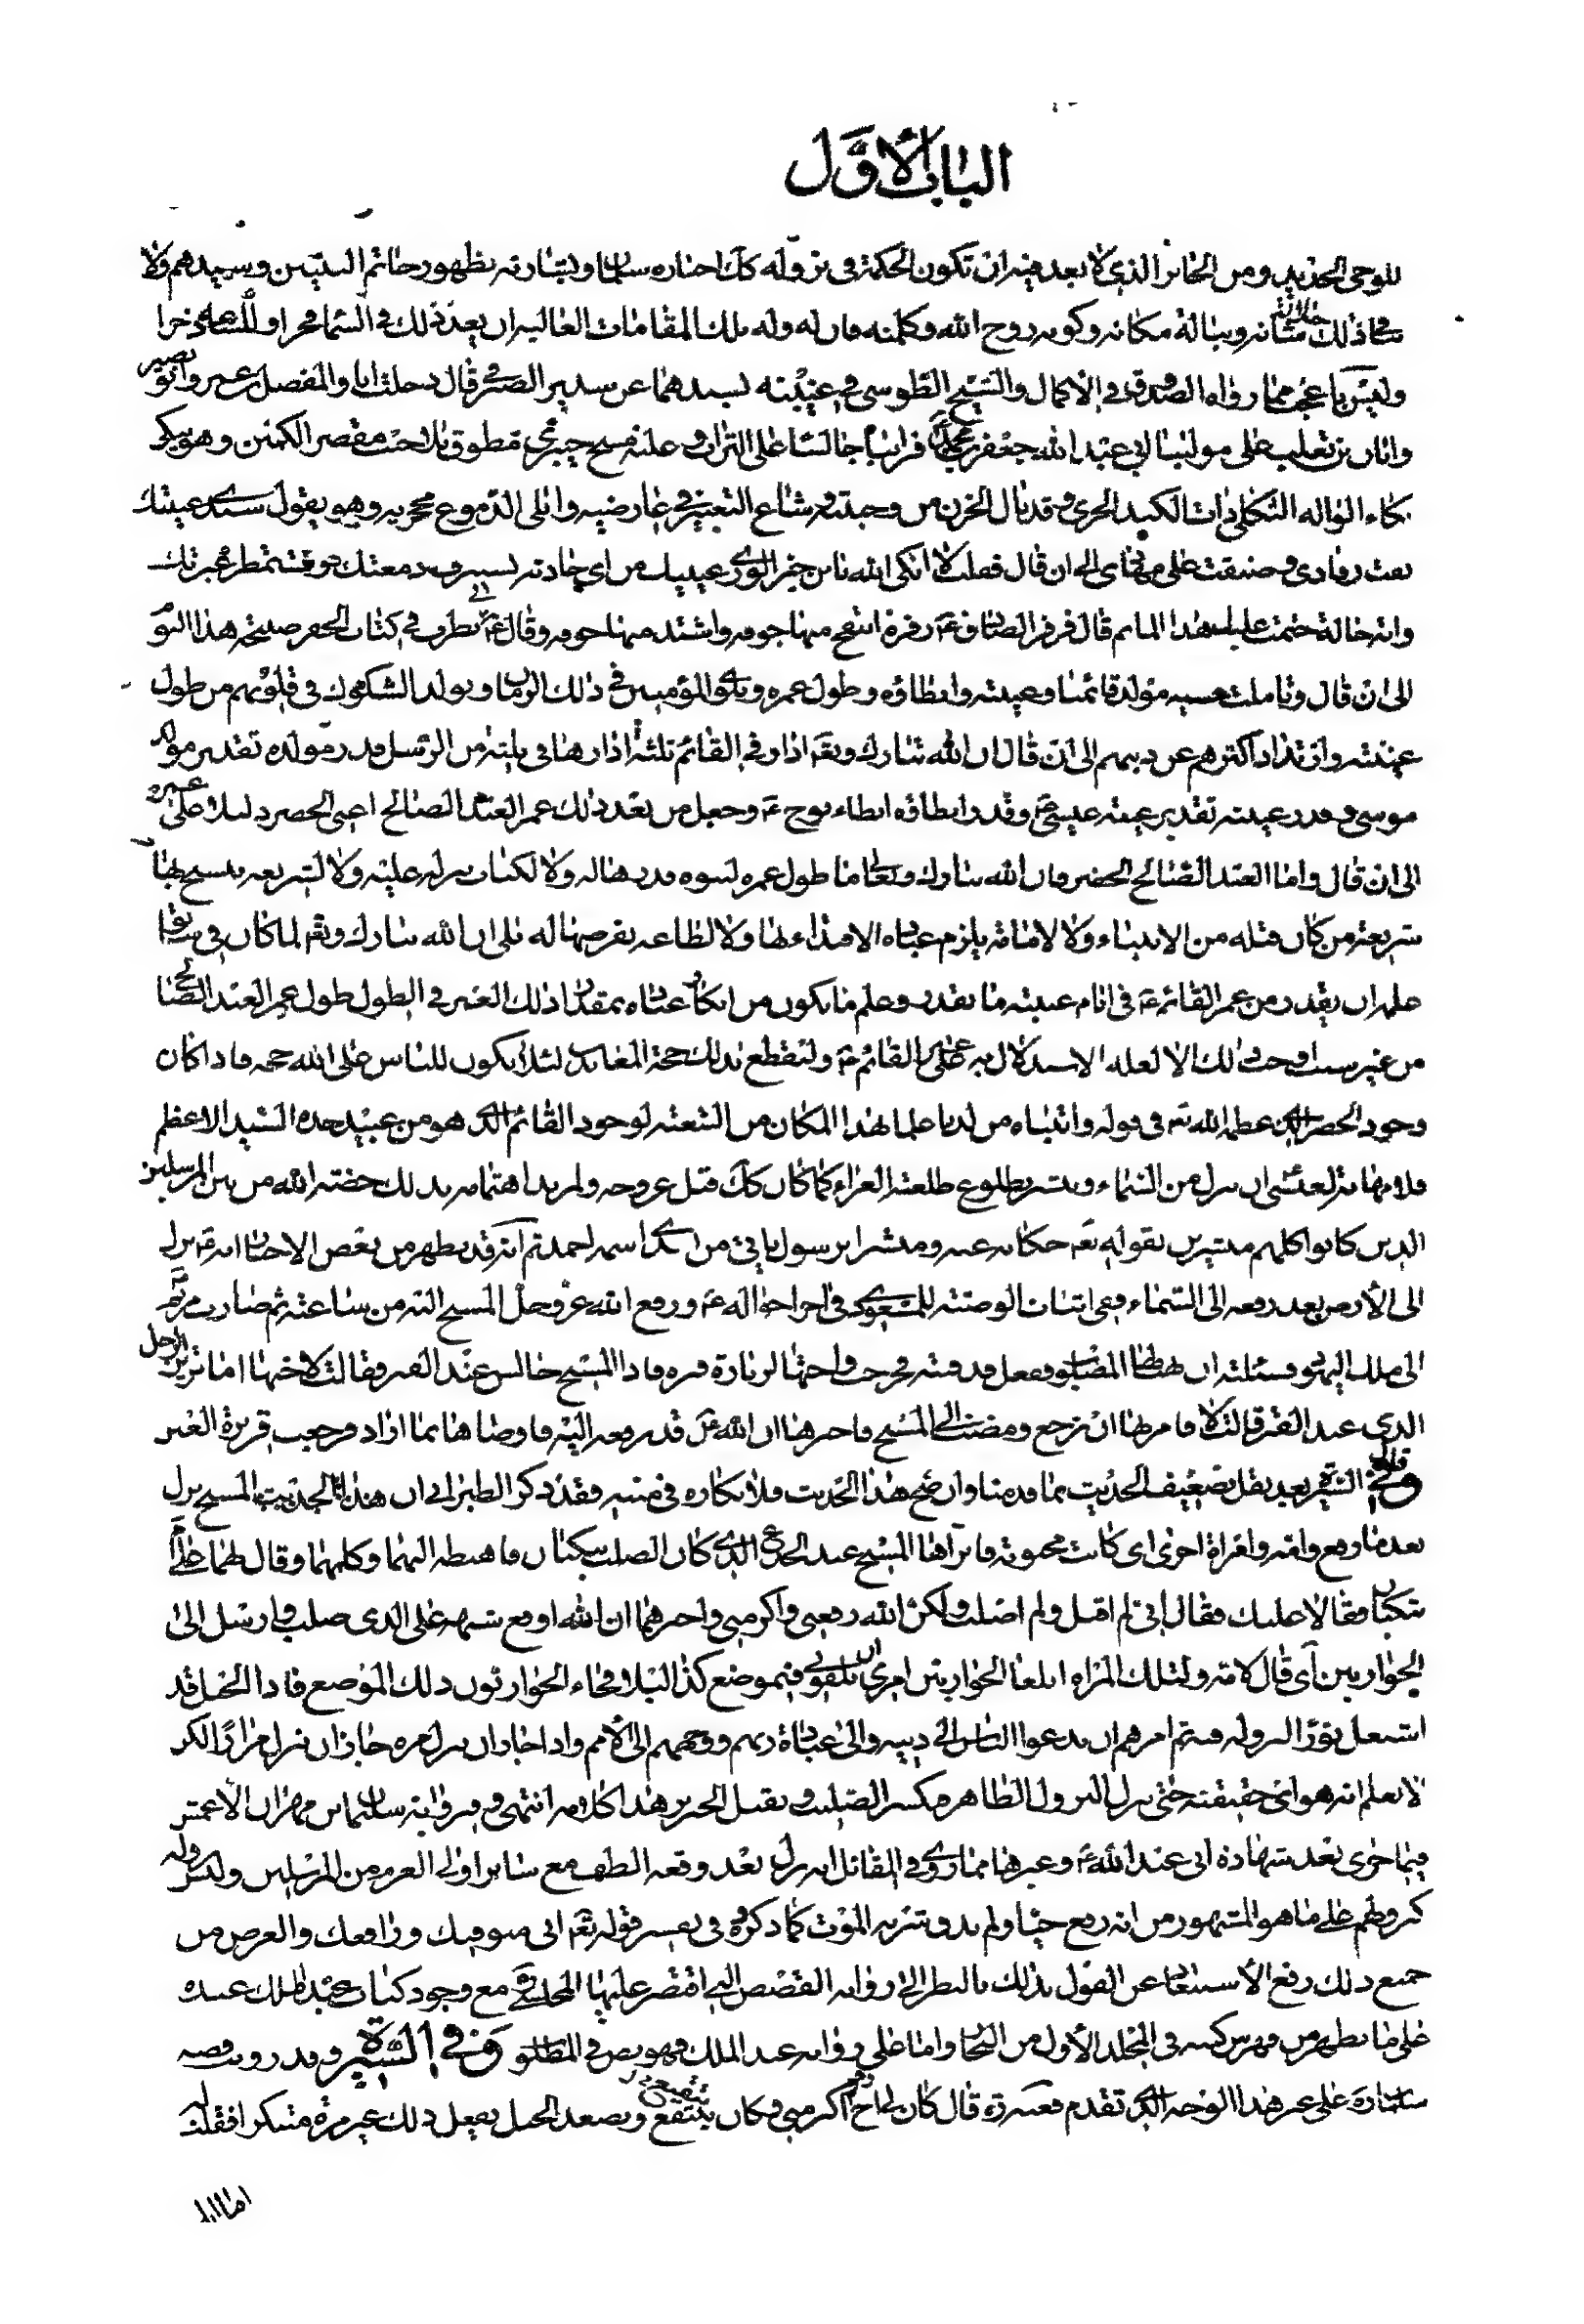 الباب الأوّل
للوحي الجديد ومن الجائز الذي لا بعد فيه ان تكون الحكمة في نزوله كك اخباره سلمان وبشارته بظهور خاتم النبيين وسيدهم ولا
ينافي ذلك جلالة شانه ونبالة مكانه وكونه روح الله وكلمته فان له وله تلك المقامات العالية ان بعد ذلك في السما فخرا و
وليس باعجب مما رواه الصدوق في الاكمال والشيخ الطوسي في غيبته بسندهما عن سدير الصيرفي قال دخلت انا والمفضل بن عمر وابو بصير
وابان بن تغلب على مولينا ابي عبد الله جعفر بن محمد فرايناه جالسا على التراب وعليه مسح خيبري مطوق بلا جيب مقصر الكمين وهو يبكي
بكاء الواله الثكلى ذات الكبد الحرى وقد نال الحزن من وجنتيه وشاع التغيير في عارضيه وابلى الدموع محجريه وهو يقول سيدي غيبتك
نفت رقادي وضيقت علي مهادي الى ان قال فقلت لا ابكى الله يابن خير الورى عينيك من اي حادثة تستنزف دمعتك وتستمطر عبرتك
واية حالة حتمت عليك هذا الماتم قال فزفر الصادق ع زفرة انتفخ منها جوفه واشتد منها خوفه وقال نظرت في كتاب الجفر صبيحة هذا اليوم
الى ان قال وتاملت فيه مولد قائمنا وغيبته وابطاؤه وطول عمره وبلوى المؤمنين في ذلك الزمان وتولد الشكوك في قلوبهم من طول
غيبته وارتداد اكثرهم عن دينهم الى ان قال ان الله تبارك وتع ادار في القائم ثلثة ادارها في ثلثة من الرسل قدر مولده تقدير مولد
موسى وقدر غيبته تقدير غيبة عيسى ع وقدر ابطاؤه ابطاء نوح ع وجعل من بعد ذلك عمر العبد الصالح اعني الخضر دليلا على عمره
الى ان قال واما العبد الصالح الخضر فان الله تبارك وتعالى ما طول عمره لنبوة قدرها له ولا لكتاب ينزله عليه ولا لشريعة ينسخ بها
شريعة من كان قبله من الانبياء ولا لامامة يلزم عباده الاقتداء بها ولا لطاعة يفرضها له بلى ان الله تبارك وتع لما كان في سابق
علمه ان يقدر من عمر القائم ع في ايام غيبته ما يقدر وعلم ما يكون من انكار عباده بمقدار ذلك العمر في الطول طول عمر العبد الصالح
من غير سبب اوجب ذلك الا لعلة الاستدلال به على عمر القائم ع ولتقطع بذلك حجة المعاندين لئلا يكون للناس على الله حجة فاذا كان
وجود الخضر الذي عظمه الله تع في قوله واتيناه من لدنا علما بهذا المكان من التبعية لوجود القائم الذي هو من عبيد جده السيد الاعظم
فلا مهانة لعيسى ان ينزل من السماء ويبشر بطلوع طلعته الغراء كما كان كك قبل عروجه ولم يزل اهتمامه بذلك خصته الله من بين المرسلين
الذين كانوا كلهم مبشرين بقوله تع حكاية عنه ومبشرا برسول ياتي من بعدي اسمه احمد ثم انه قد يظهر من بعض الاخبار انه ع نزل
الى الارض بعد رفعه الى السماء ففي اثبات الوصية للمسعودي في اخر احواله ع ورفع الله عز وجل المسيح اليه من ساعته ثم صارت مريم
الى ملك اليهود فسئلته ان يهب لها المصلوب ففعل فدفنته فخرجت واختها لزيارة قبره فاذا المسيح جالس عند القبر فقالت لاختها اما ترين الرجل
الذي عند القبر قالت لا فامرها ان ترجع ومضت الى المسيح فاخبرها ان الله عز وجل قد رفعه اليه واوصاها بما اراد فرجعت قريرة العين
وفي السيرة بعد نقل تضعيف الحديث بما قدمنا وان صح هذا الحديث فلا نكارة في متنه فقد ذكر الطبراني ان هذا الحديث المسيح نزل
بعد ما رفع وامه وامراة اخرى اي كانت مجنونة فابراها المسيح عند الجذع الذي كان الصليب يبكيان فاهبطه اليهما وكلمهما وقال لهما على م
تبكيان فقالا عليك فقال اني لم اقتل ولم اصلب ولكن الله رفعني واكرمني واخبرهما ان الله اوقع شبهه على الذي صلب وارسل الى
الحواريين اي قال لامه ولتلك المراة ابلغا الحواريين امري ان يلقوني في موضع كذا ليلا فجاء الحواريون ذلك الموضع فاذا الجبل قد
اشتعل نورا لنزوله فيه ثم امرهم ان يدعوا الناس الى دينه والى عبادة ربهم ووجههم الى الامم واذا جاز ان ينزل مرة جاز ان ينزل مرارا لكن
لا نعلم انه هو اي حقيقته حتى ينزل النزول الظاهر فيكسر الصليب ويقتل الخنزير هذا كلامه انتهى وفي رواية سليمان بن مهران الاعمش
فيما جرى بعد شهادة ابي عبد الله ع وغيرها مما روي في المقاتل انه نزل بعد وقعة الطف مع سائر اولي العزم من المرسلين ولكن نزوله
كنزولهم على ما هو المشهور من انه رفع حيا ولم يذق شربة الموت كما ذكروه في تفسير قوله تع اني متوفيك ورافعك والغرض من
جميع ذلك رفع الاستبعاد عن القول بذلك بالنظر الى رواية القصص التي اقتصر عليها المجلسي مع وجود كتاب عبد الملك عنده
على ما يظهر من فهرس كتبه في المجلد الاول من البحار واما على رواية عبد الملك فهو نص في المطلوب وفي السيرة وقد رويت قصة
سلمان ره على غير هذا الوجه الذي تقدم فعنه ره قال كان لي اخ اكبر مني وكان يتقنع ويصعد الجبل يفعل ذلك غير مرة متنكرا فقلت
اما انك